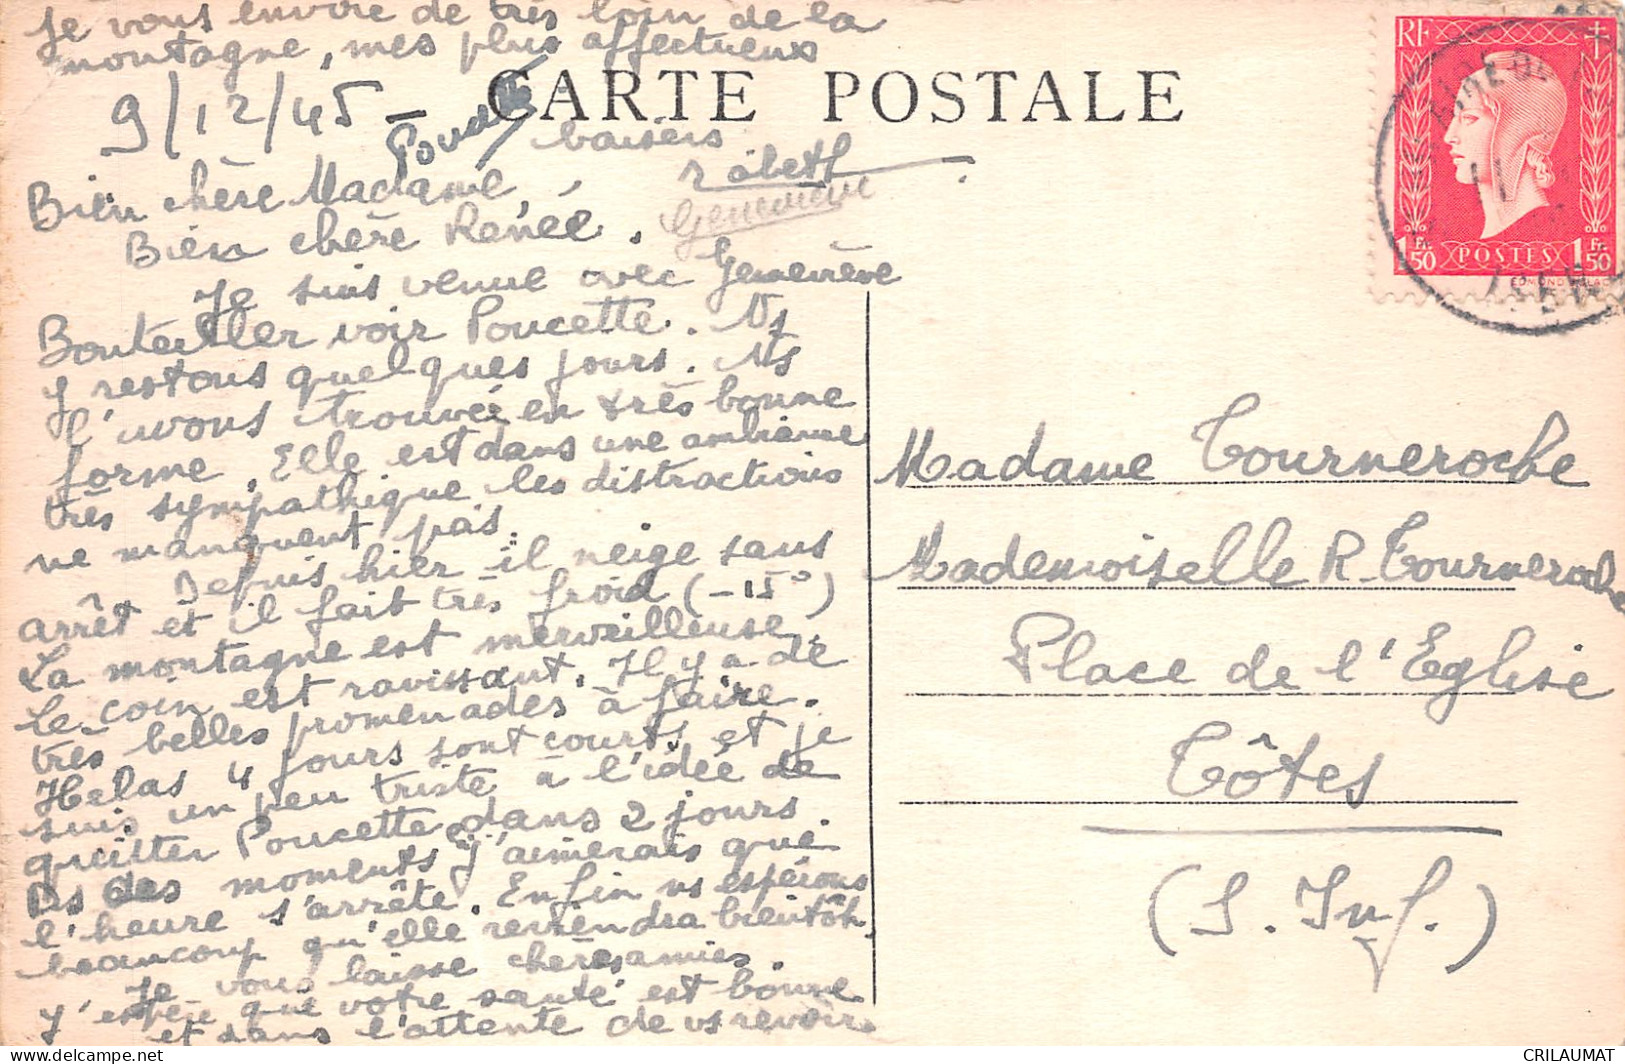 je vous envoie de très loin de la
montagne, mes plus affectueux
CARTE POSTALE
9/12/45 -
baisers
Bien chère Madame,
Geneviève
Bien chère Renée.
Je suis venue avec Geneviève
Bouteiller voir Poucette. Ns
y restons quelques jours. Ns
l'avons trouvée en très bonne
forme. Elle est dans une ambiance
très sympathique les distractions
ne manquent pas.
Depuis hier il neige sans
arrêt et il fait très froid (-15°)
La montagne est merveilleuse.
Le coin est ravissant. Il y a de
très belles promenades à faire.
Helas 4 jours sont courts et je
suis un peu triste à l'idée de
quitter Poucette dans 2 jours.
Ds des moments j'aimerais que
l'heure s'arrête. Enfin ns espérons
beaucoup qu'elle reviendra bientôt.
Je vous laisse chères amies.
J'espère que votre santé est bonne
et dans l'attente de vs revoir
RF
1 Fr. 50 POSTES 1 Fr. 50
Madame Tourneroche
Mademoiselle R. Tourneroche
Place de l'Eglise
Tôtes
(S. Inf.)
CRILAUMAT